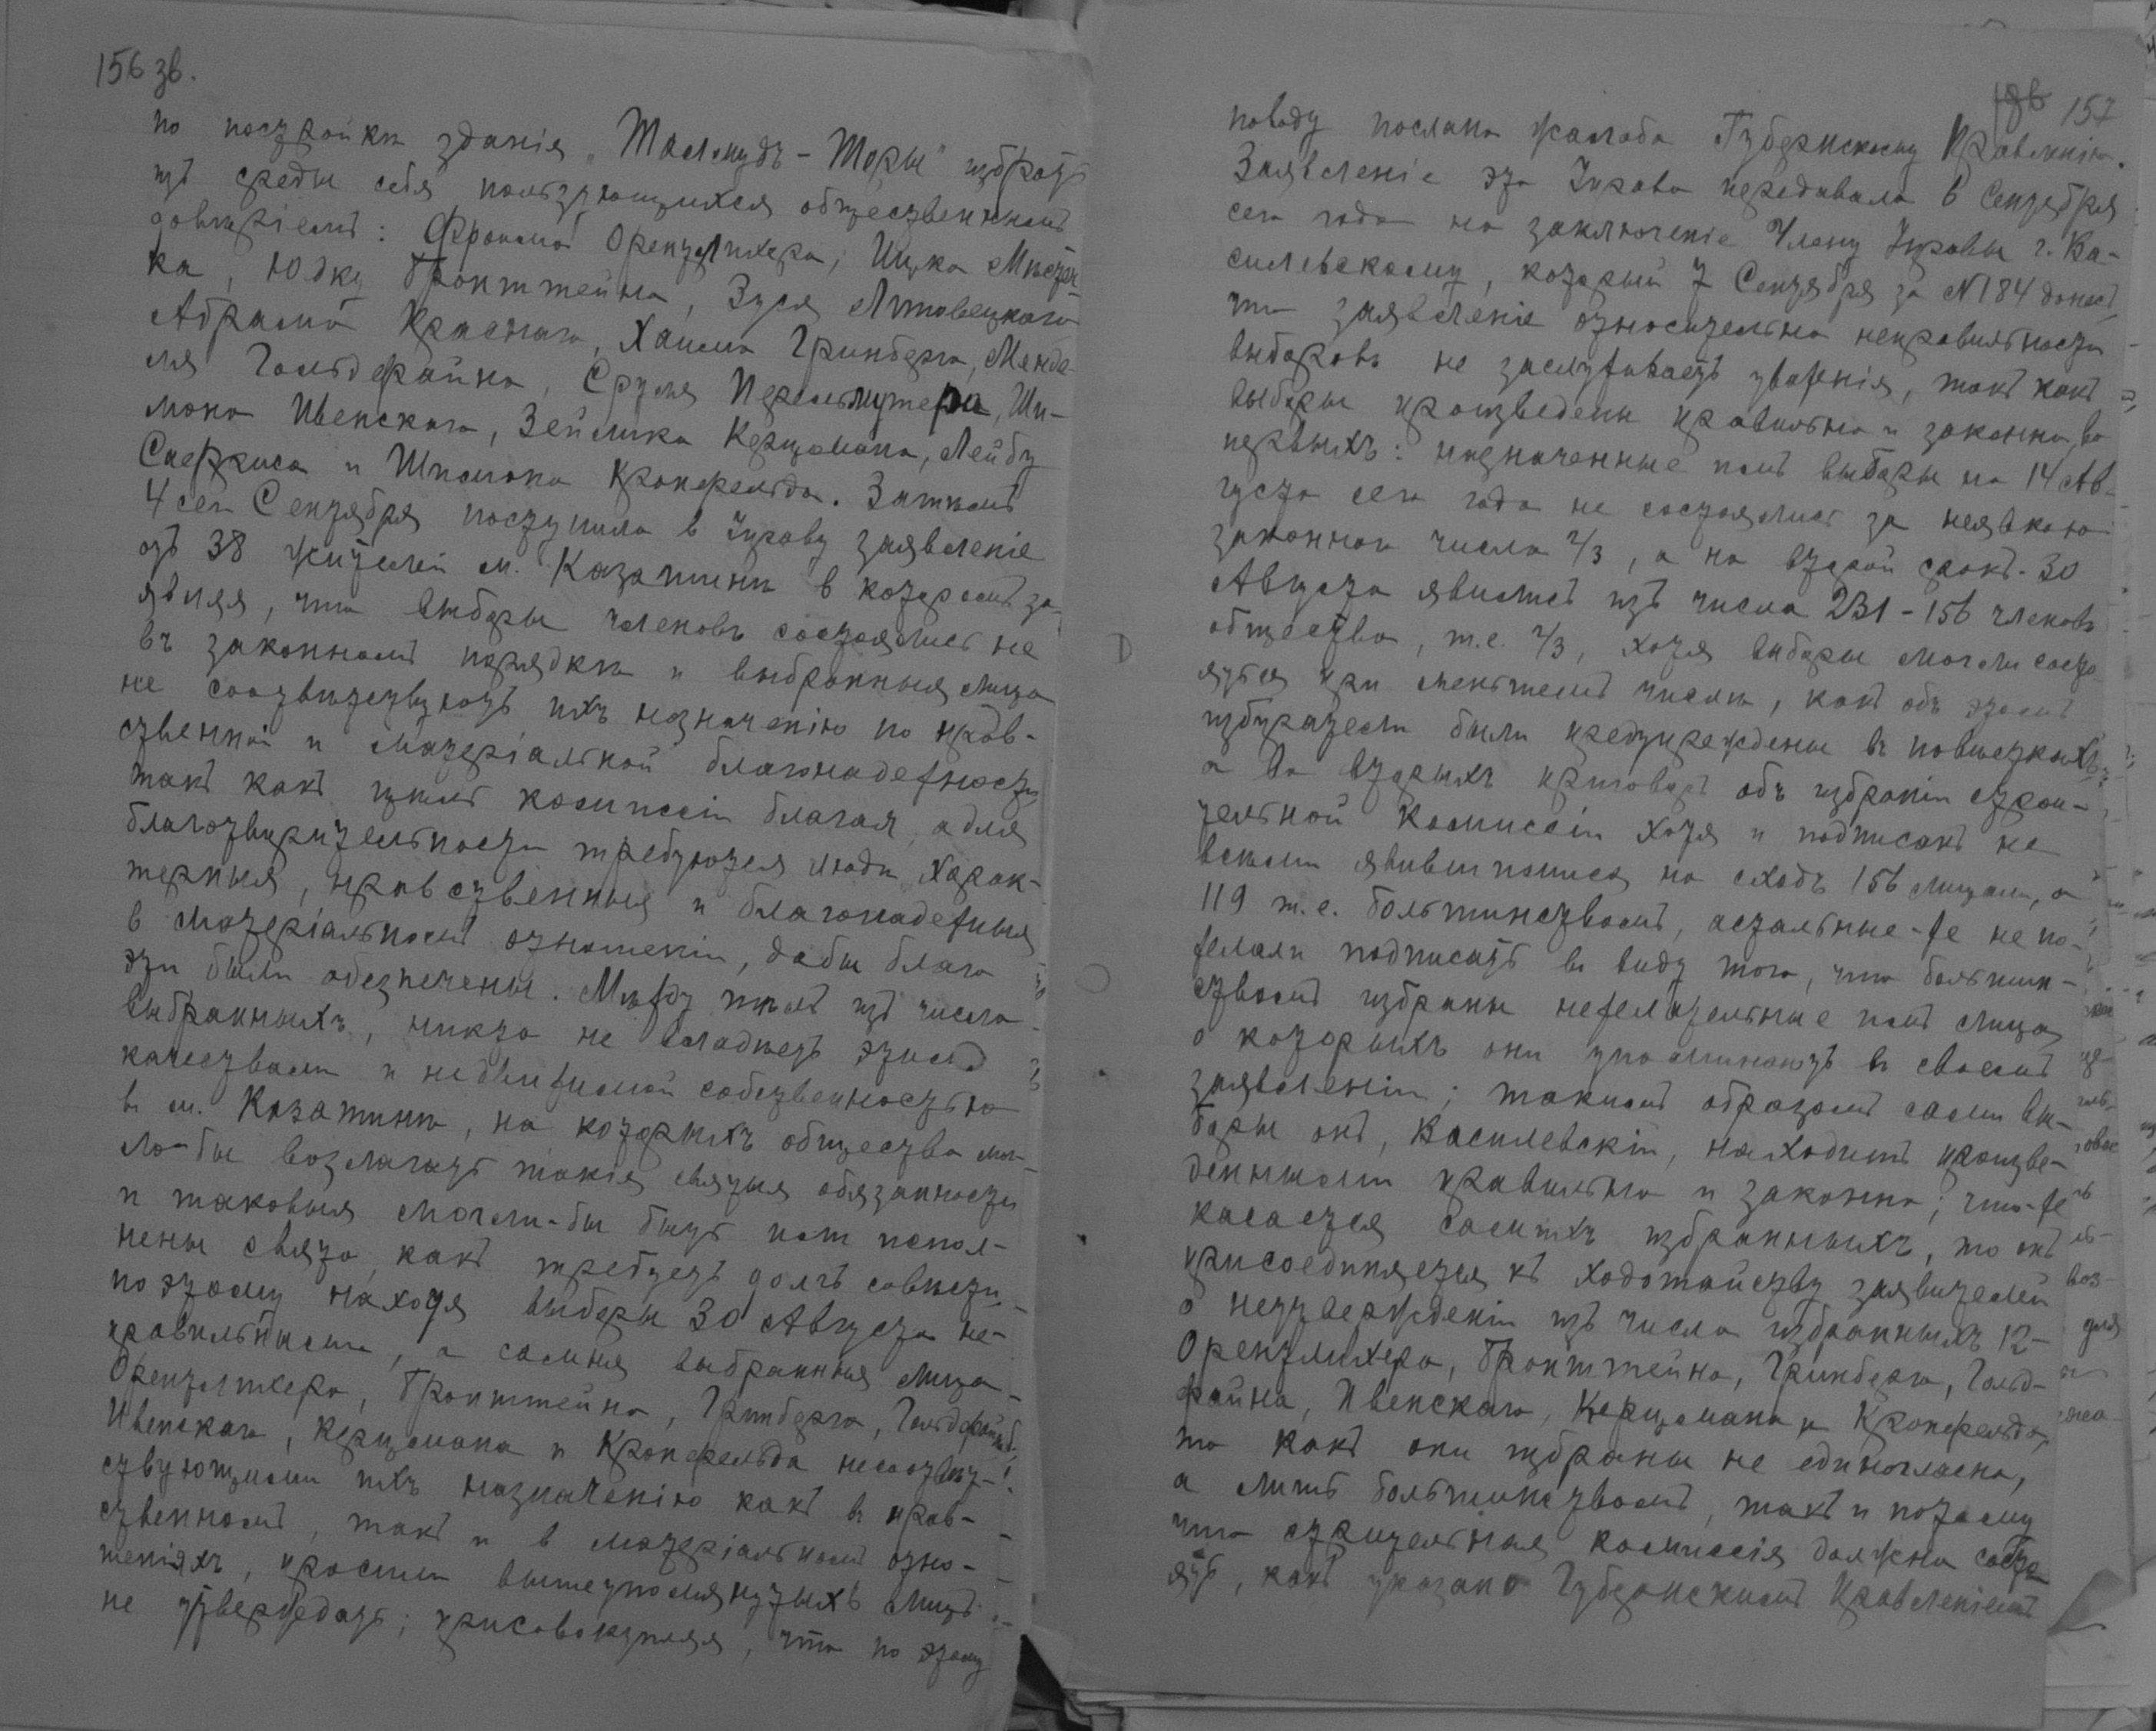 156 зв.
по постройкѣ зданія „Талмудъ-Торы" избрать
изъ среды себя пользующихся общественнымъ
довѣріемъ: Фроима Орензлихера, Ицка Мистеч-
ка, Юдку Бронштейна, Зуся Литовецкаго
Абрама Краснаго, Хаима Гринберга, Менде-
ля Гольдфайна, Сруля Перельмутера, Ши-
мона Ивенскаго, Зейлика Керцмана, Лейбу
и Шимона Кронфельда. Затѣмъ
4 сего Сентября поступило в Управу заявленіе
отъ 38 жителей м. Казатина в которомъ за-
являя, что выборы членовъ состоялись не
въ законномъ порядкѣ и выбранныя лица
не соотвѣтствуютъ ихъ назначенію по нрав-
ственной и матеріальной благонадежности
такъ какъ цѣль комиссіи благая, а для
благотворительности требуются люди харак-
терныя, нравственныя и благонадежныя
в матеріальномъ отношеніи, дабы благо
эти были обезпечены. Между тѣмъ изъ числа
выбранныхъ, никто не владѣетъ этими
качествами и недвижимой собственностью
в м. Казатинѣ, на которыхъ общество мог-
ло-бы возлагать такія святыя обязанности
и таковыя могли-бы быть ими испол-
нены свято, какъ требуетъ долгъ совѣсти,
по этому находя выборы 30 Августа не-
правильными, а самыя выбранныя лица-
Орензлихера, Бронштейна, Гринберга, Гольдфайна,
Ивенскаго, Керцмана и Кронфельда несоотвѣт-
ствующими ихъ назначенію какъ в нрав-
ственномъ, такъ и в матеріальномъ отно-
шеніяхъ, просили вышеупомянутыхъ лицъ
не утверждать; присовокупляя, что по этому
156 157
поводу послана жалоба Губернскому Правленію.
Заявленіе это Управа передавала 6 Сентября
сего года на заключеніе Члену Управы г. Ва-
силевскому, который 7 Сентября за №184 донесъ,
что заявленіе относительно неправильности
выборовъ не заслуживаетъ уваженія, такъ какъ
выборы произведены правильно и законно, во
первыхъ: назначенные имъ выборы на 14 Ав-
густа сего года не состоялись за неявкою
законнаго числа 2/3, а на второй срокъ-30
Августа явились изъ числа 231-156 членовъ
общества, т.е. 2/3, хотя выборы могли состо-
яться при меньшемъ числѣ, какъ объ этомъ
избиратели были предупреждены въ повѣсткахъ,
а во вторыхъ приговоръ объ избраніи строи-
тельной Комиссіи хотя и подписанъ не
всѣми явившимися на сходъ 156 лицами, а
119 т.е. большинствомъ, остальные-же не по-
желали подписать въ виду того, что большин-
ствомъ избраны нежелательные имъ лица,
о которыхъ они упоминаютъ в своемъ
заявленіи; такимъ образомъ сами вы-
боры онъ, Василевскій, находитъ произве-
денными правильно и законно; что-же
касается самихъ избранныхъ, то онъ
присоединяется къ ходатайству заявителей
о неутвержденіи изъ числа избранныхъ 12-
Орензлихера, Бронштейна, Гринберга, Гольд-
файна, Ивенскаго, Керцмана и Кронфельда,
то какъ они избраны не единогласно,
а лишь большинствомъ, такъ и потому
что строительная комиссія должна состо-
ять, какъ указано Губернскимъ Правленіемъ